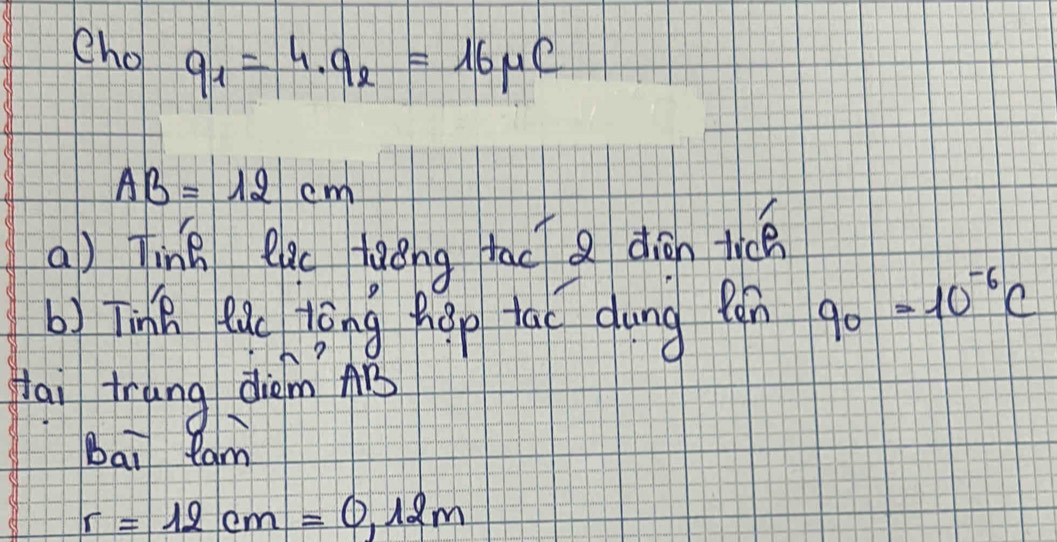 Cho q₁ = 4.q₂ = 16μC
AB = 12 cm
a) Tính lực tương tác 2 điện tích
b) Tính lực tổng hợp tác dụng lên q₀ = 10⁻⁶C
tại trung điểm AB
Bài làm
r = 12 cm = 0,12m